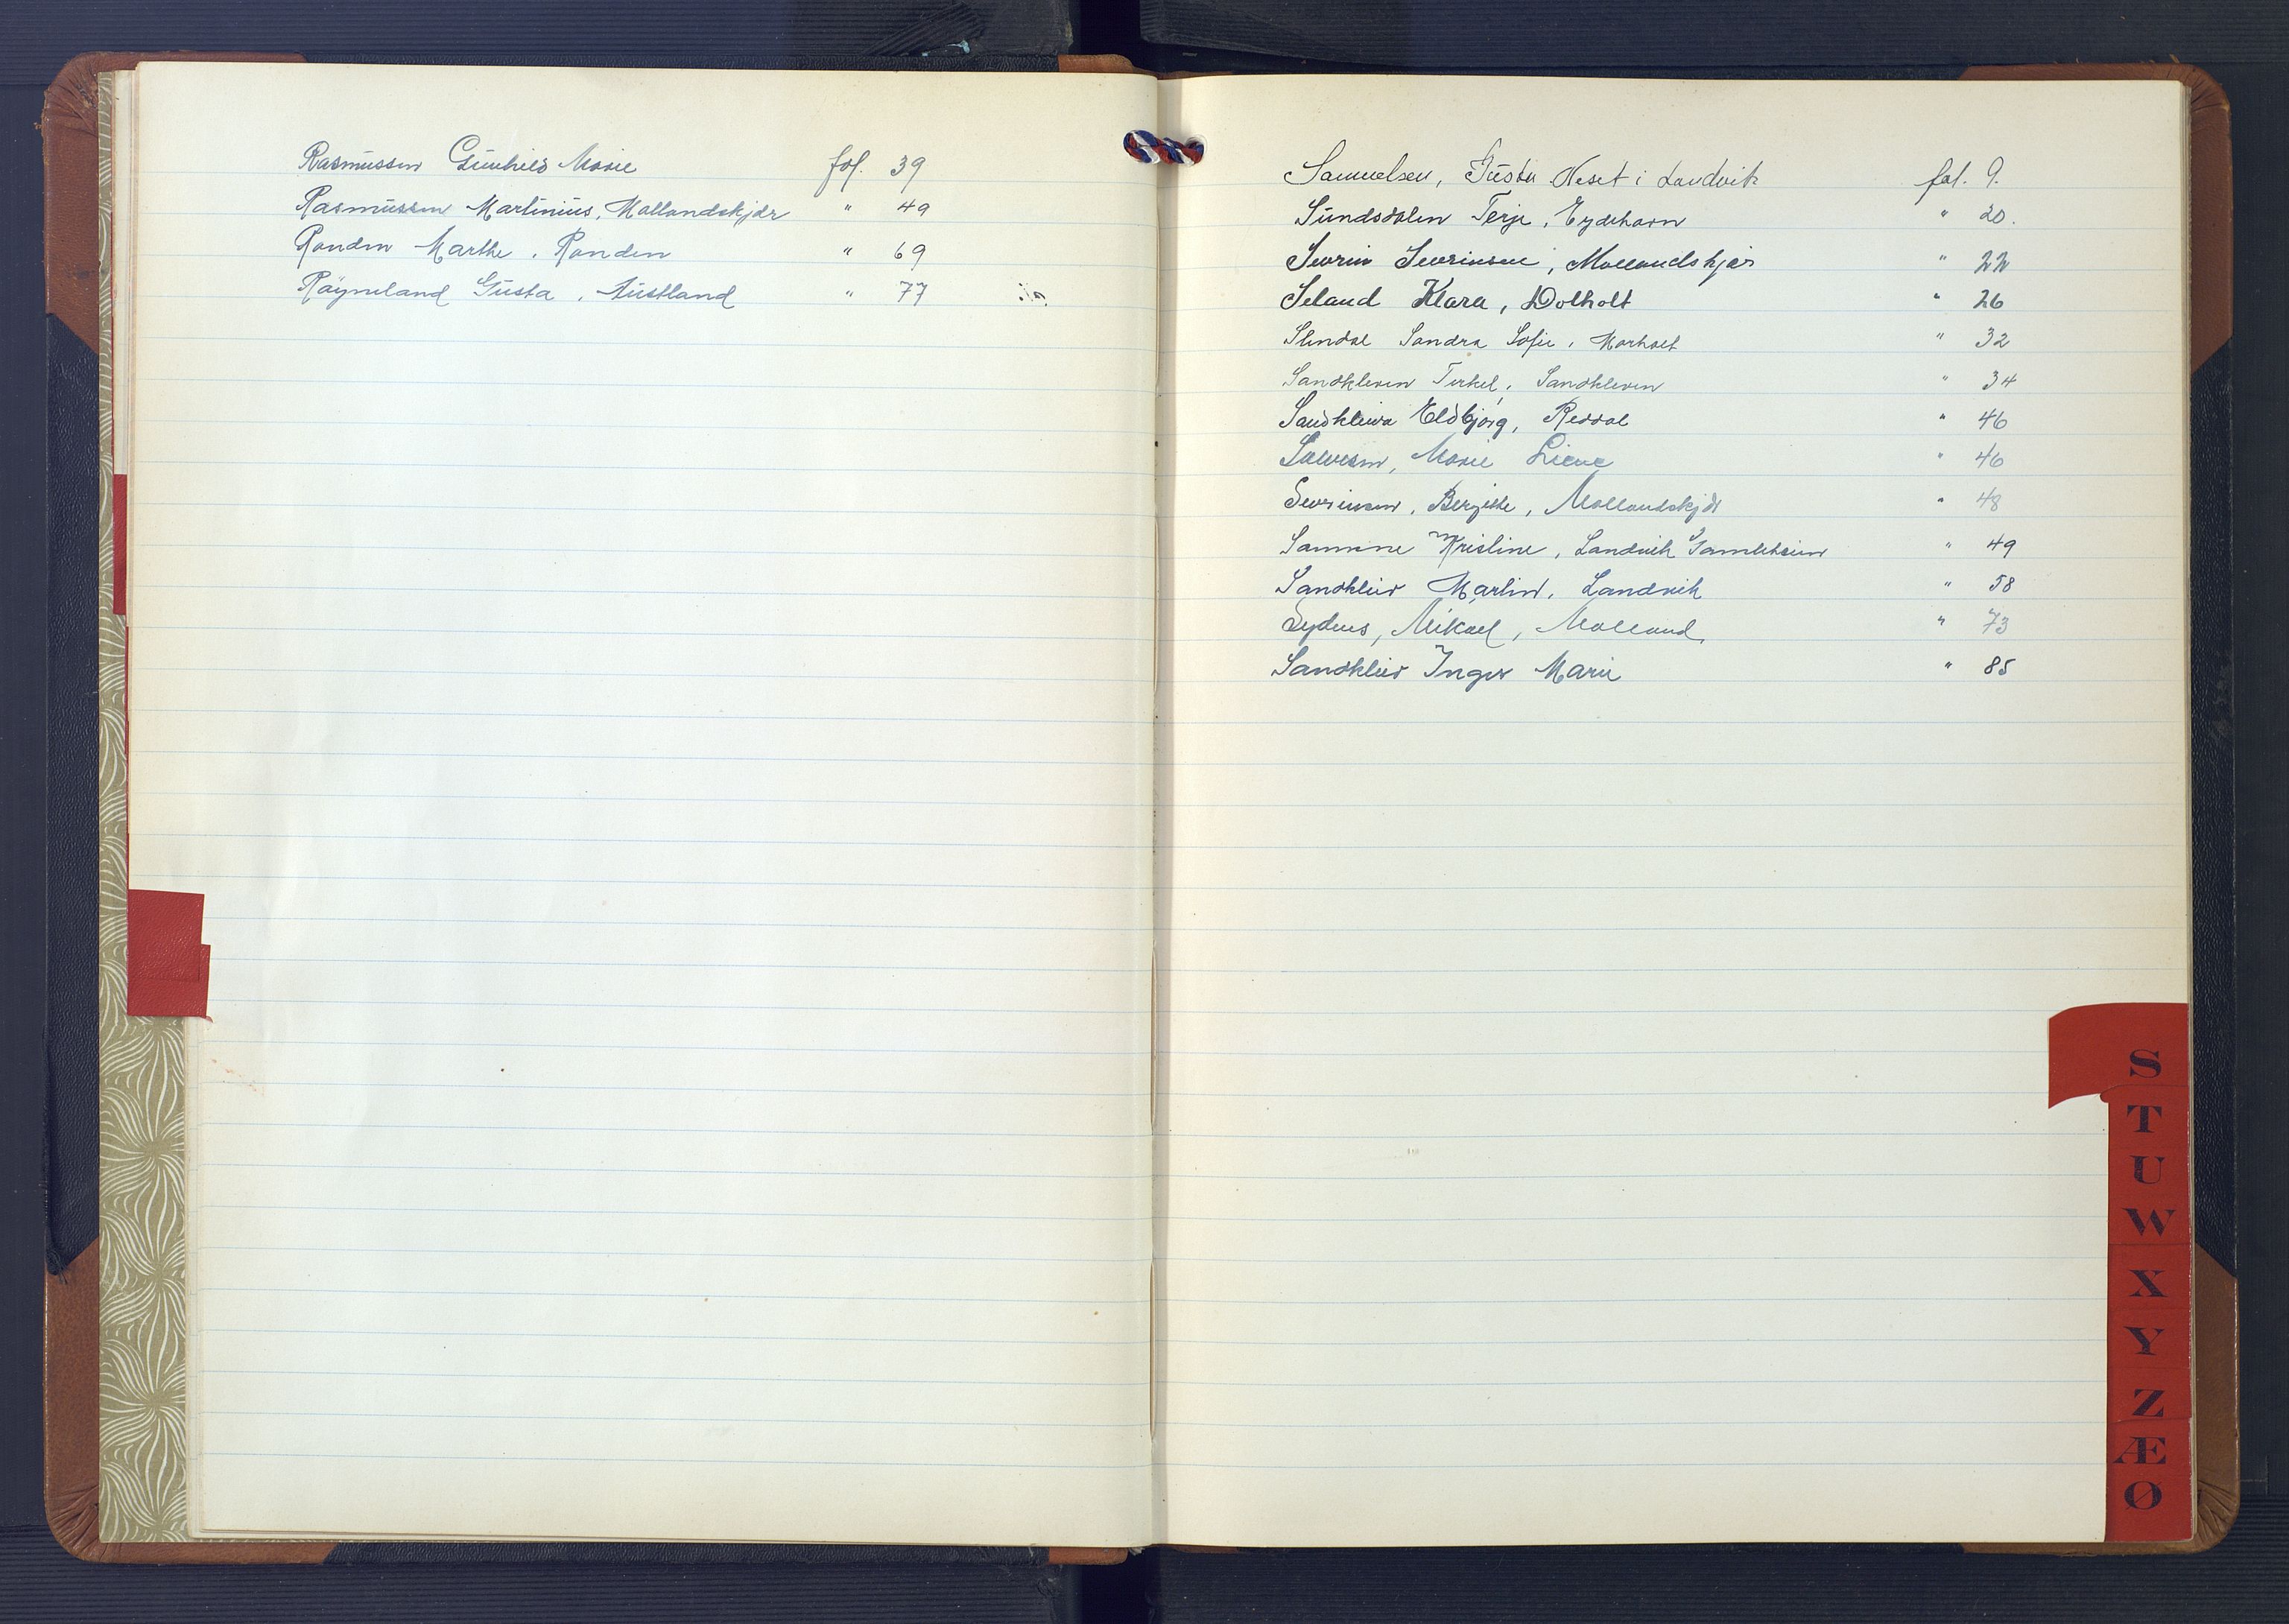 Rasmussen Gunhild Marie fol. 39
Rasmussen Martinius, Mollandskjær " 49
Randen Marthe, Randen " 69
Røyneland Gusta, Austland " 77
Samuelsen, Gusta Neset i Landvik fol. 9.
Sundsdalen Terje, Eydehavn " 20.
Sevrin Sevrinsen, Mollandskjær " 22
Seland Klara, Dolholt " 26
Sandra Sofie, Morholt " 32
Sandkleven Terkel, Sandkleven " 34
Sandkleiva Eldbjørg, Reddal " 46
Salvesen, Marie Liene " 46
Sevrinsen, Bergitte, Mollandskjær " 48
Kristine, Landvik Gamleheim " 49
Sandkleiv Martin, Landvik " 58
Mikael, Molland. " 73
Sandkleiv Inger Marie " 85
S
T
U
W
X
Y
Z
Æ
Ø